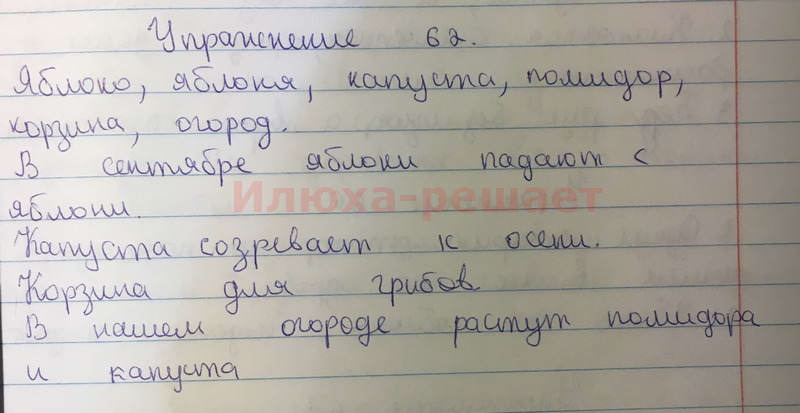 Упражнение 62.
Яблоко, яблоня, капуста, помидор,
корзина, огород.
В сентябре яблоки падают с
яблони.
Илюха-решает
Капуста созревает к осени.
Корзина для грибов
В нашем огороде растут помидора
и капуста